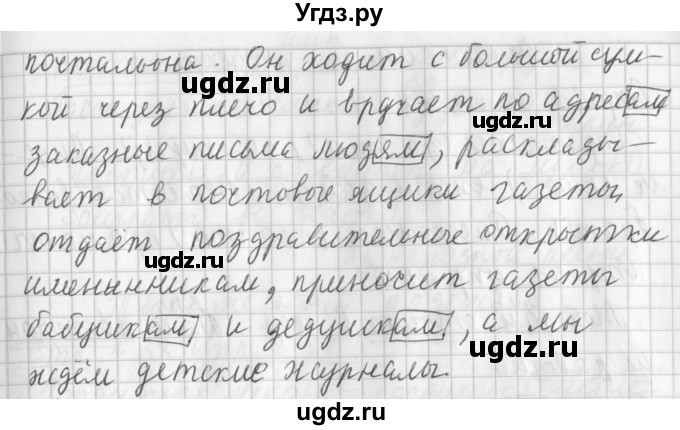 Угдз.ру
почтальона. Он ходит с большой сум-
кой через плечо и вручает по адресам
заказные письма людям, расклады-
вает в почтовые ящики газеты,
отдаёт поздравительные открытки
именинникам, приносит газеты
бабушкам и дедушкам, а мы
ждём детские журналы.
ugdz.ru
ugdz.ru
ugdz.ru
ugdz.ru
ugdz.ru
ugdz.ru
ugdz.ru